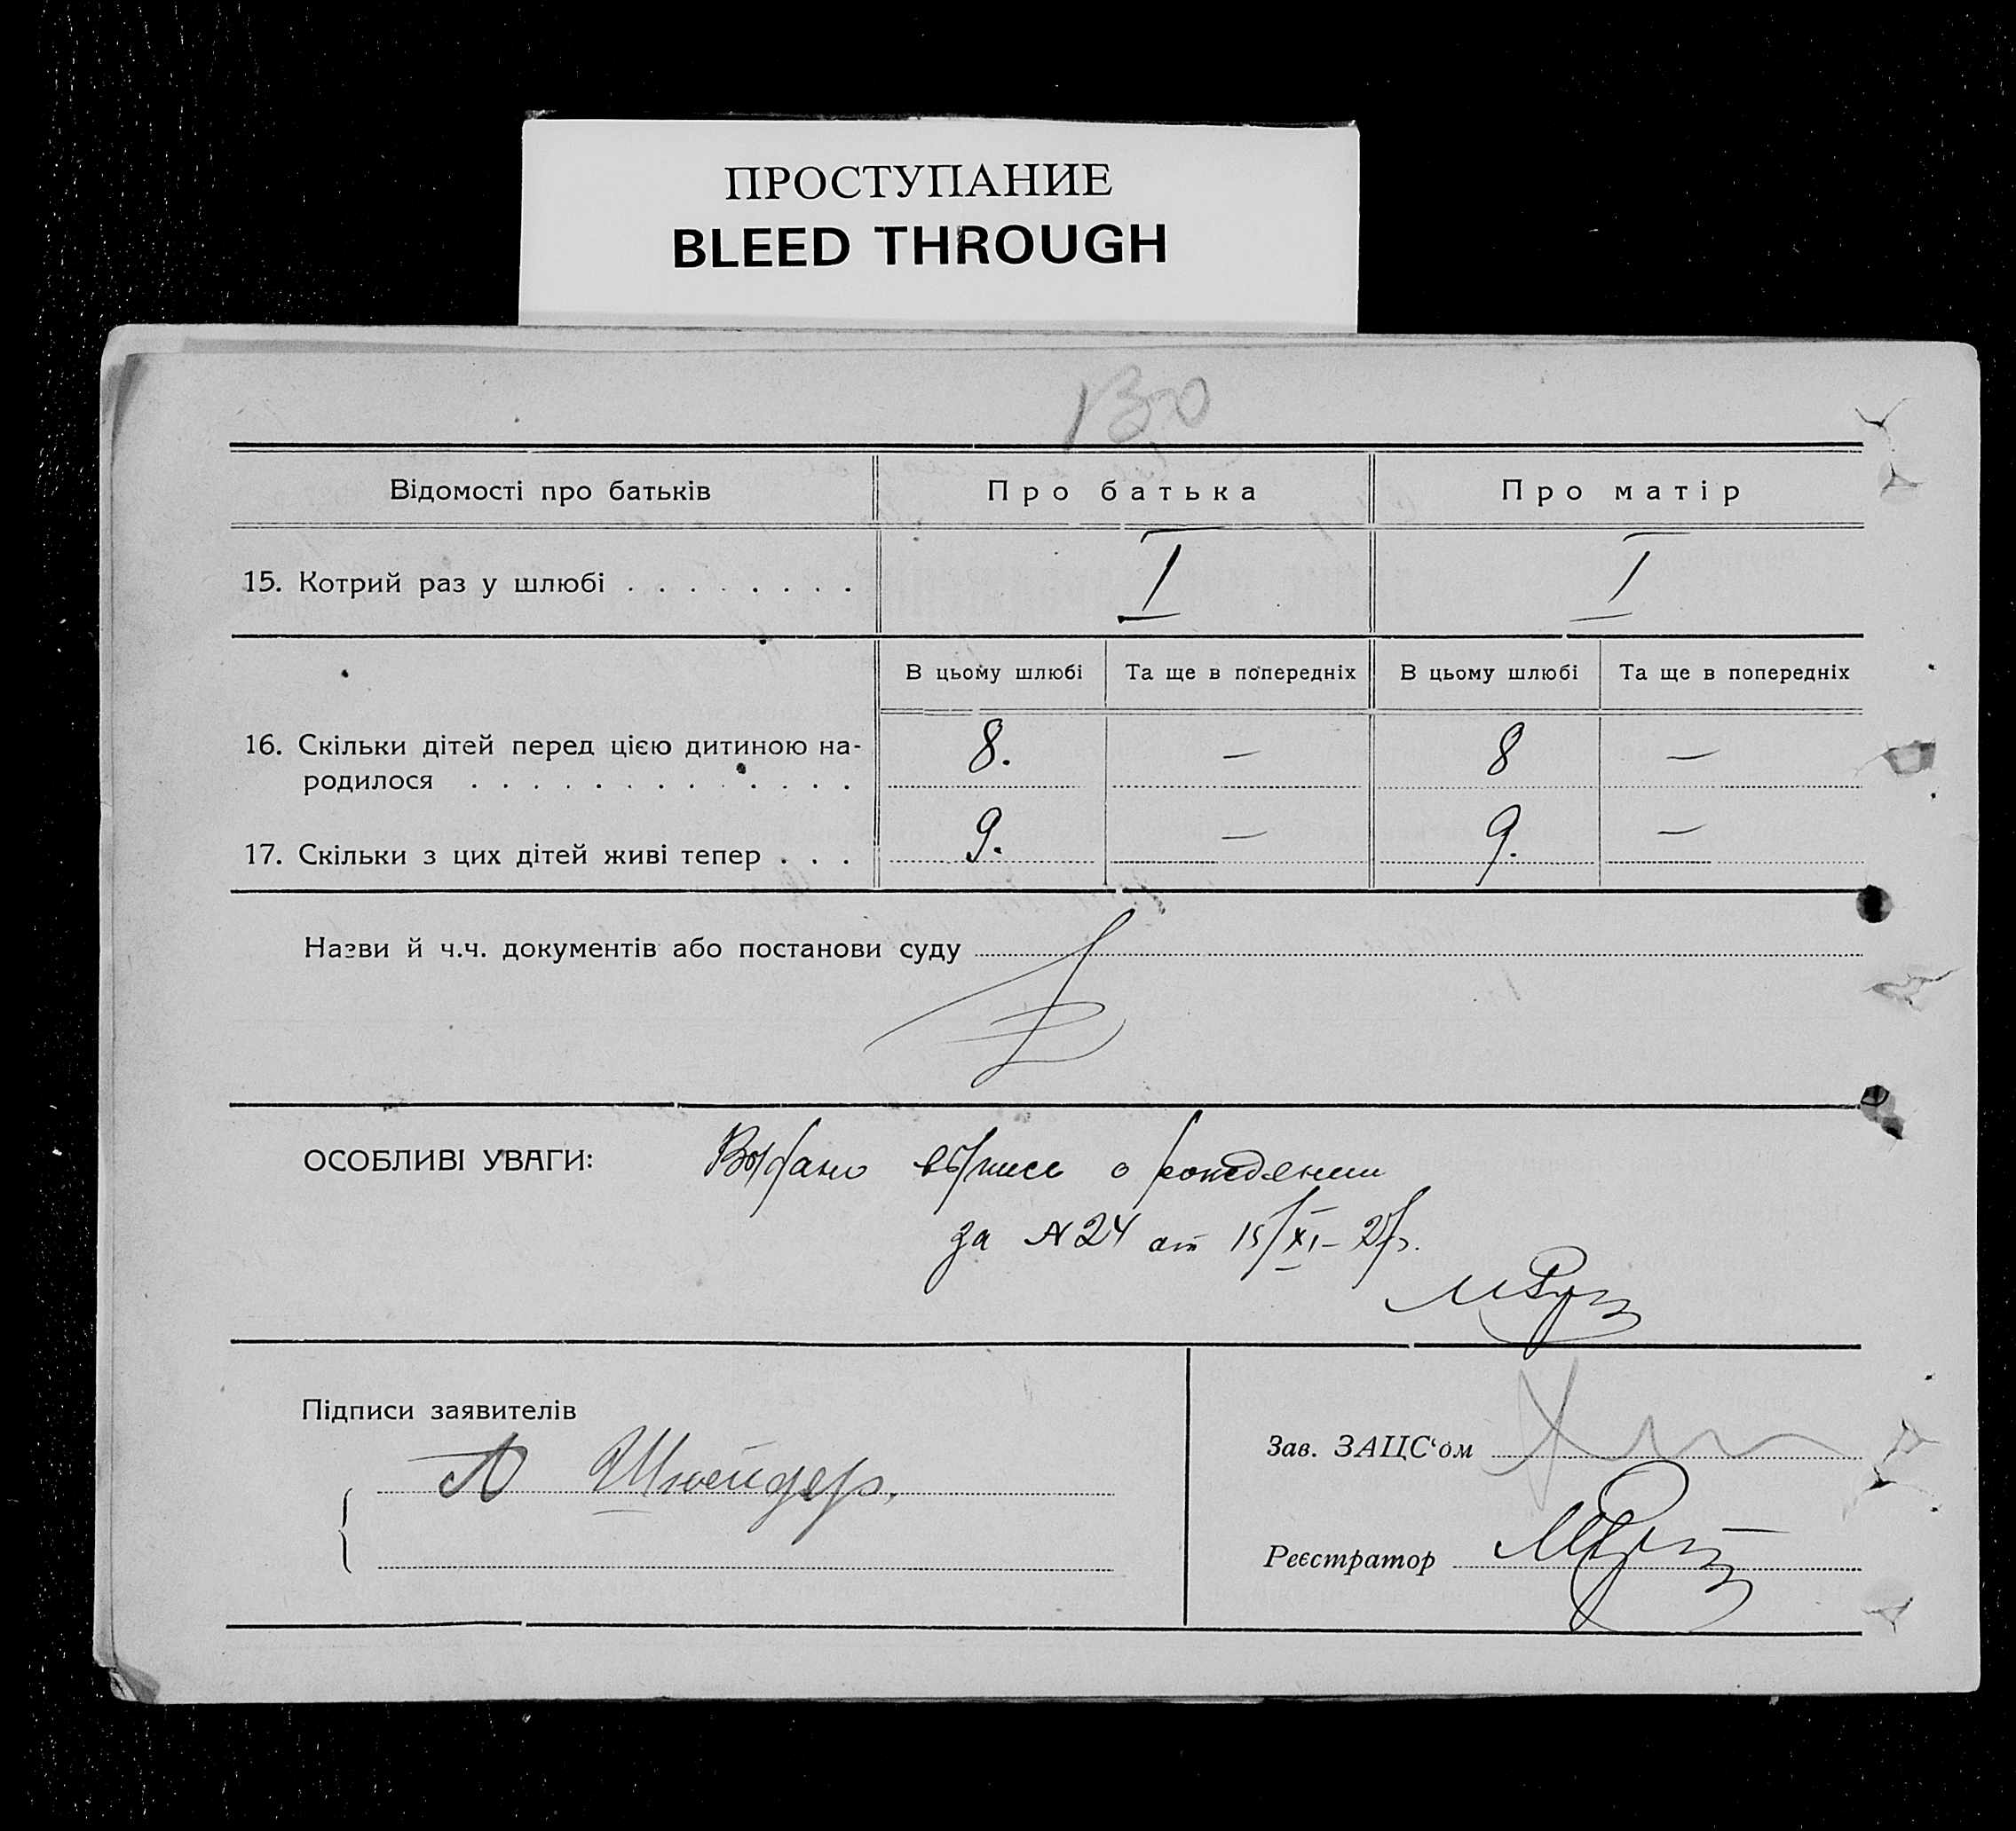 ПРОСТУПАНИЕ
BLEED THROUGH
130
Відомості про батьків
Про батька
Про матір
15. Котрий раз у шлюбі . . . . . . . .
I
I
В цьому шлюбі
Та ще в попередніх
В цьому шлюбі
Та ще в попередніх
16. Скільки дітей перед цією дитиною на-
родилося . . . . . . . . . . . . .
8.
—
8
—
17. Скільки з цих дітей живі тепер . . .
9.
—
9.
—
Назви й ч.ч. документів або постанови суду
ОСОБЛИВІ УВАГИ:
Выдано выпись о рождении
за N 24 от 15/XI-
Підписи заявителів
А Шнейдер.
Зав. ЗАЦС'ом
Реєстратор